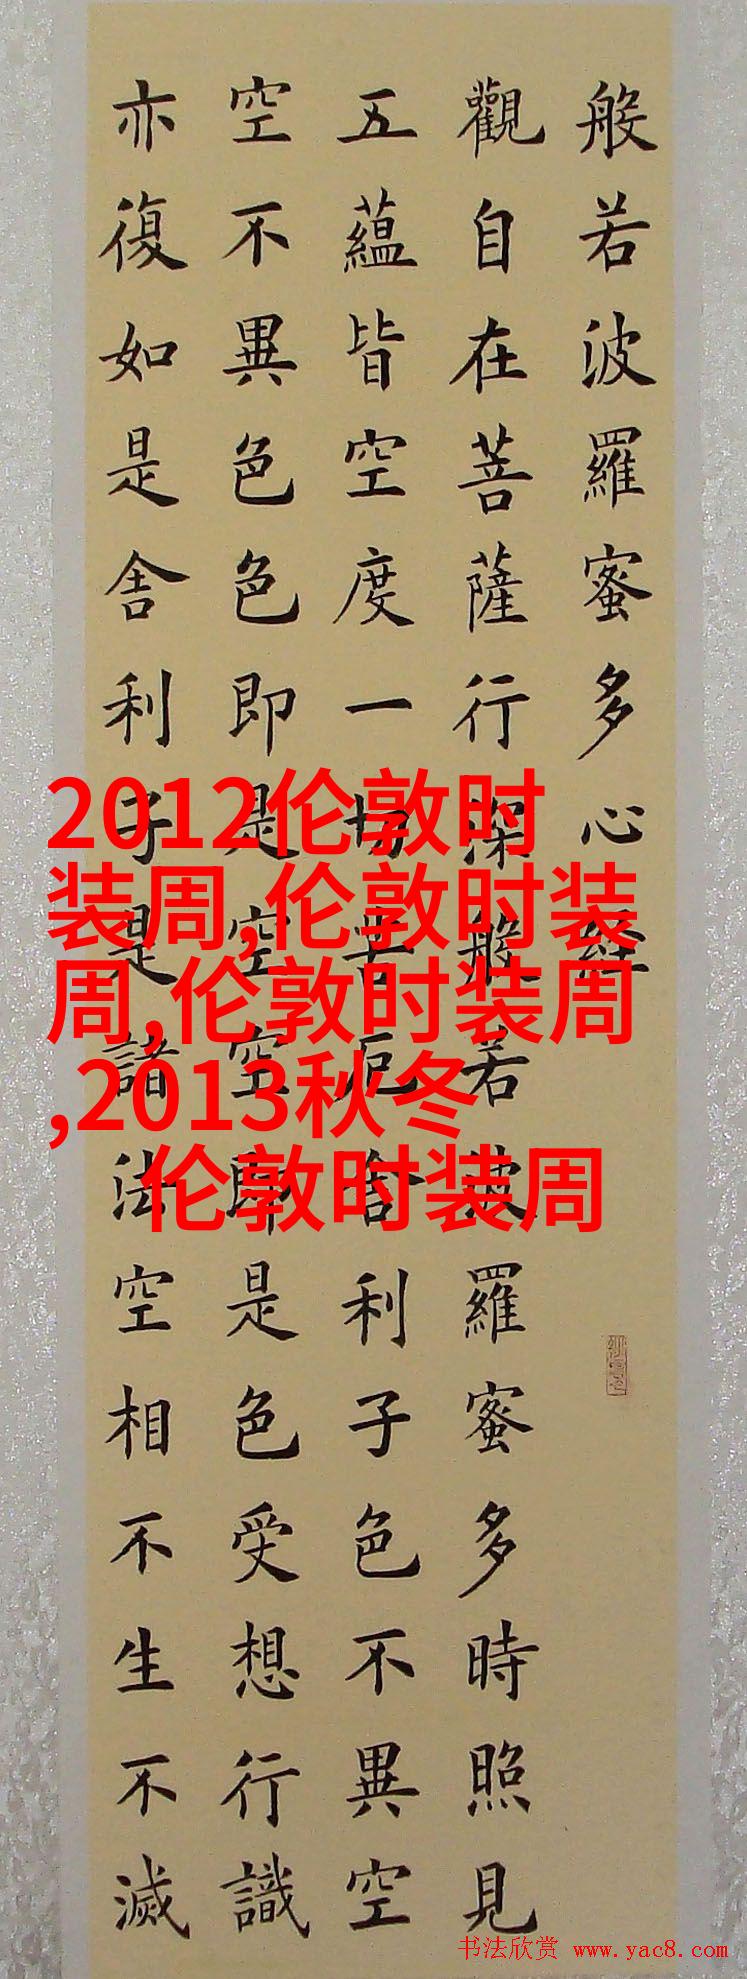 般若波羅蜜多心経
觀自在菩薩行深般若波羅蜜多時照見
五蘊皆空度一切苦厄舍利子色不異空
空不異色色即是空空即是色受想行識
亦復如是舍利子是諸法空相不生不滅
2012伦敦时
装周,伦敦时装
周,伦敦时装周
,2013秋冬
伦敦时装周
书法欣赏 www.yac8.com